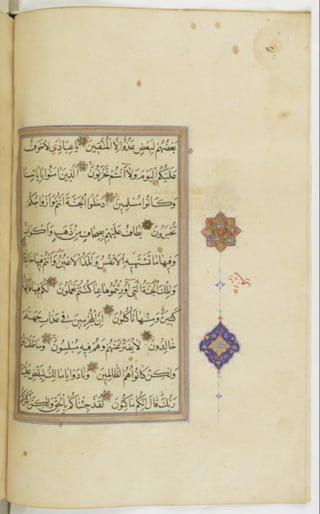 بَعْضُهُمْ لِبَعْضٍ عَدُوٌّ إِلَّا الْمُتَّقِينَ يَا عِبَادِ لَا خَوْفٌ
عَلَيْكُمُ الْيَوْمَ وَلَا أَنْتُمْ تَحْزَنُونَ الَّذِينَ آمَنُوا بِآيَاتِنَا
وَكَانُوا مُسْلِمِينَ ادْخُلُوا الْجَنَّةَ أَنْتُمْ وَأَزْوَاجُكُمْ
تُحْبَرُونَ يُطَافُ عَلَيْهِمْ بِصِحَافٍ مِنْ ذَهَبٍ وَأَكْوَابٍ
وَفِيهَا مَا تَشْتَهِيهِ الْأَنْفُسُ وَتَلَذُّ الْأَعْيُنُ وَأَنْتُمْ فِيهَا خَالِدُونَ
وَتِلْكَ الْجَنَّةُ الَّتِي أُورِثْتُمُوهَا بِمَا كُنْتُمْ تَعْمَلُونَ لَكُمْ فِيهَا فَاكِهَةٌ
كَثِيرَةٌ مِنْهَا تَأْكُلُونَ إِنَّ الْمُجْرِمِينَ فِي عَذَابِ جَهَنَّمَ
خَالِدُونَ لَا يُفَتَّرُ عَنْهُمْ وَهُمْ فِيهِ مُبْلِسُونَ وَمَا ظَلَمْنَاهُمْ
وَلَكِنْ كَانُوا هُمُ الظَّالِمِينَ وَنَادَوْا يَا مَالِكُ لِيَقْضِ عَلَيْنَا
رَبُّكَ قَالَ إِنَّكُمْ مَاكِثُونَ لَقَدْ جِئْنَاكُمْ بِالْحَقِّ وَلَكِنَّ أَكْثَرَكُمْ